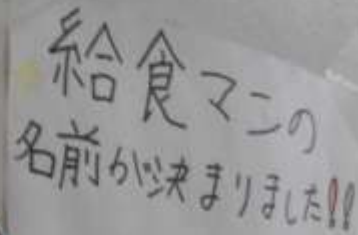 給食マンの
名前が決まりました!!